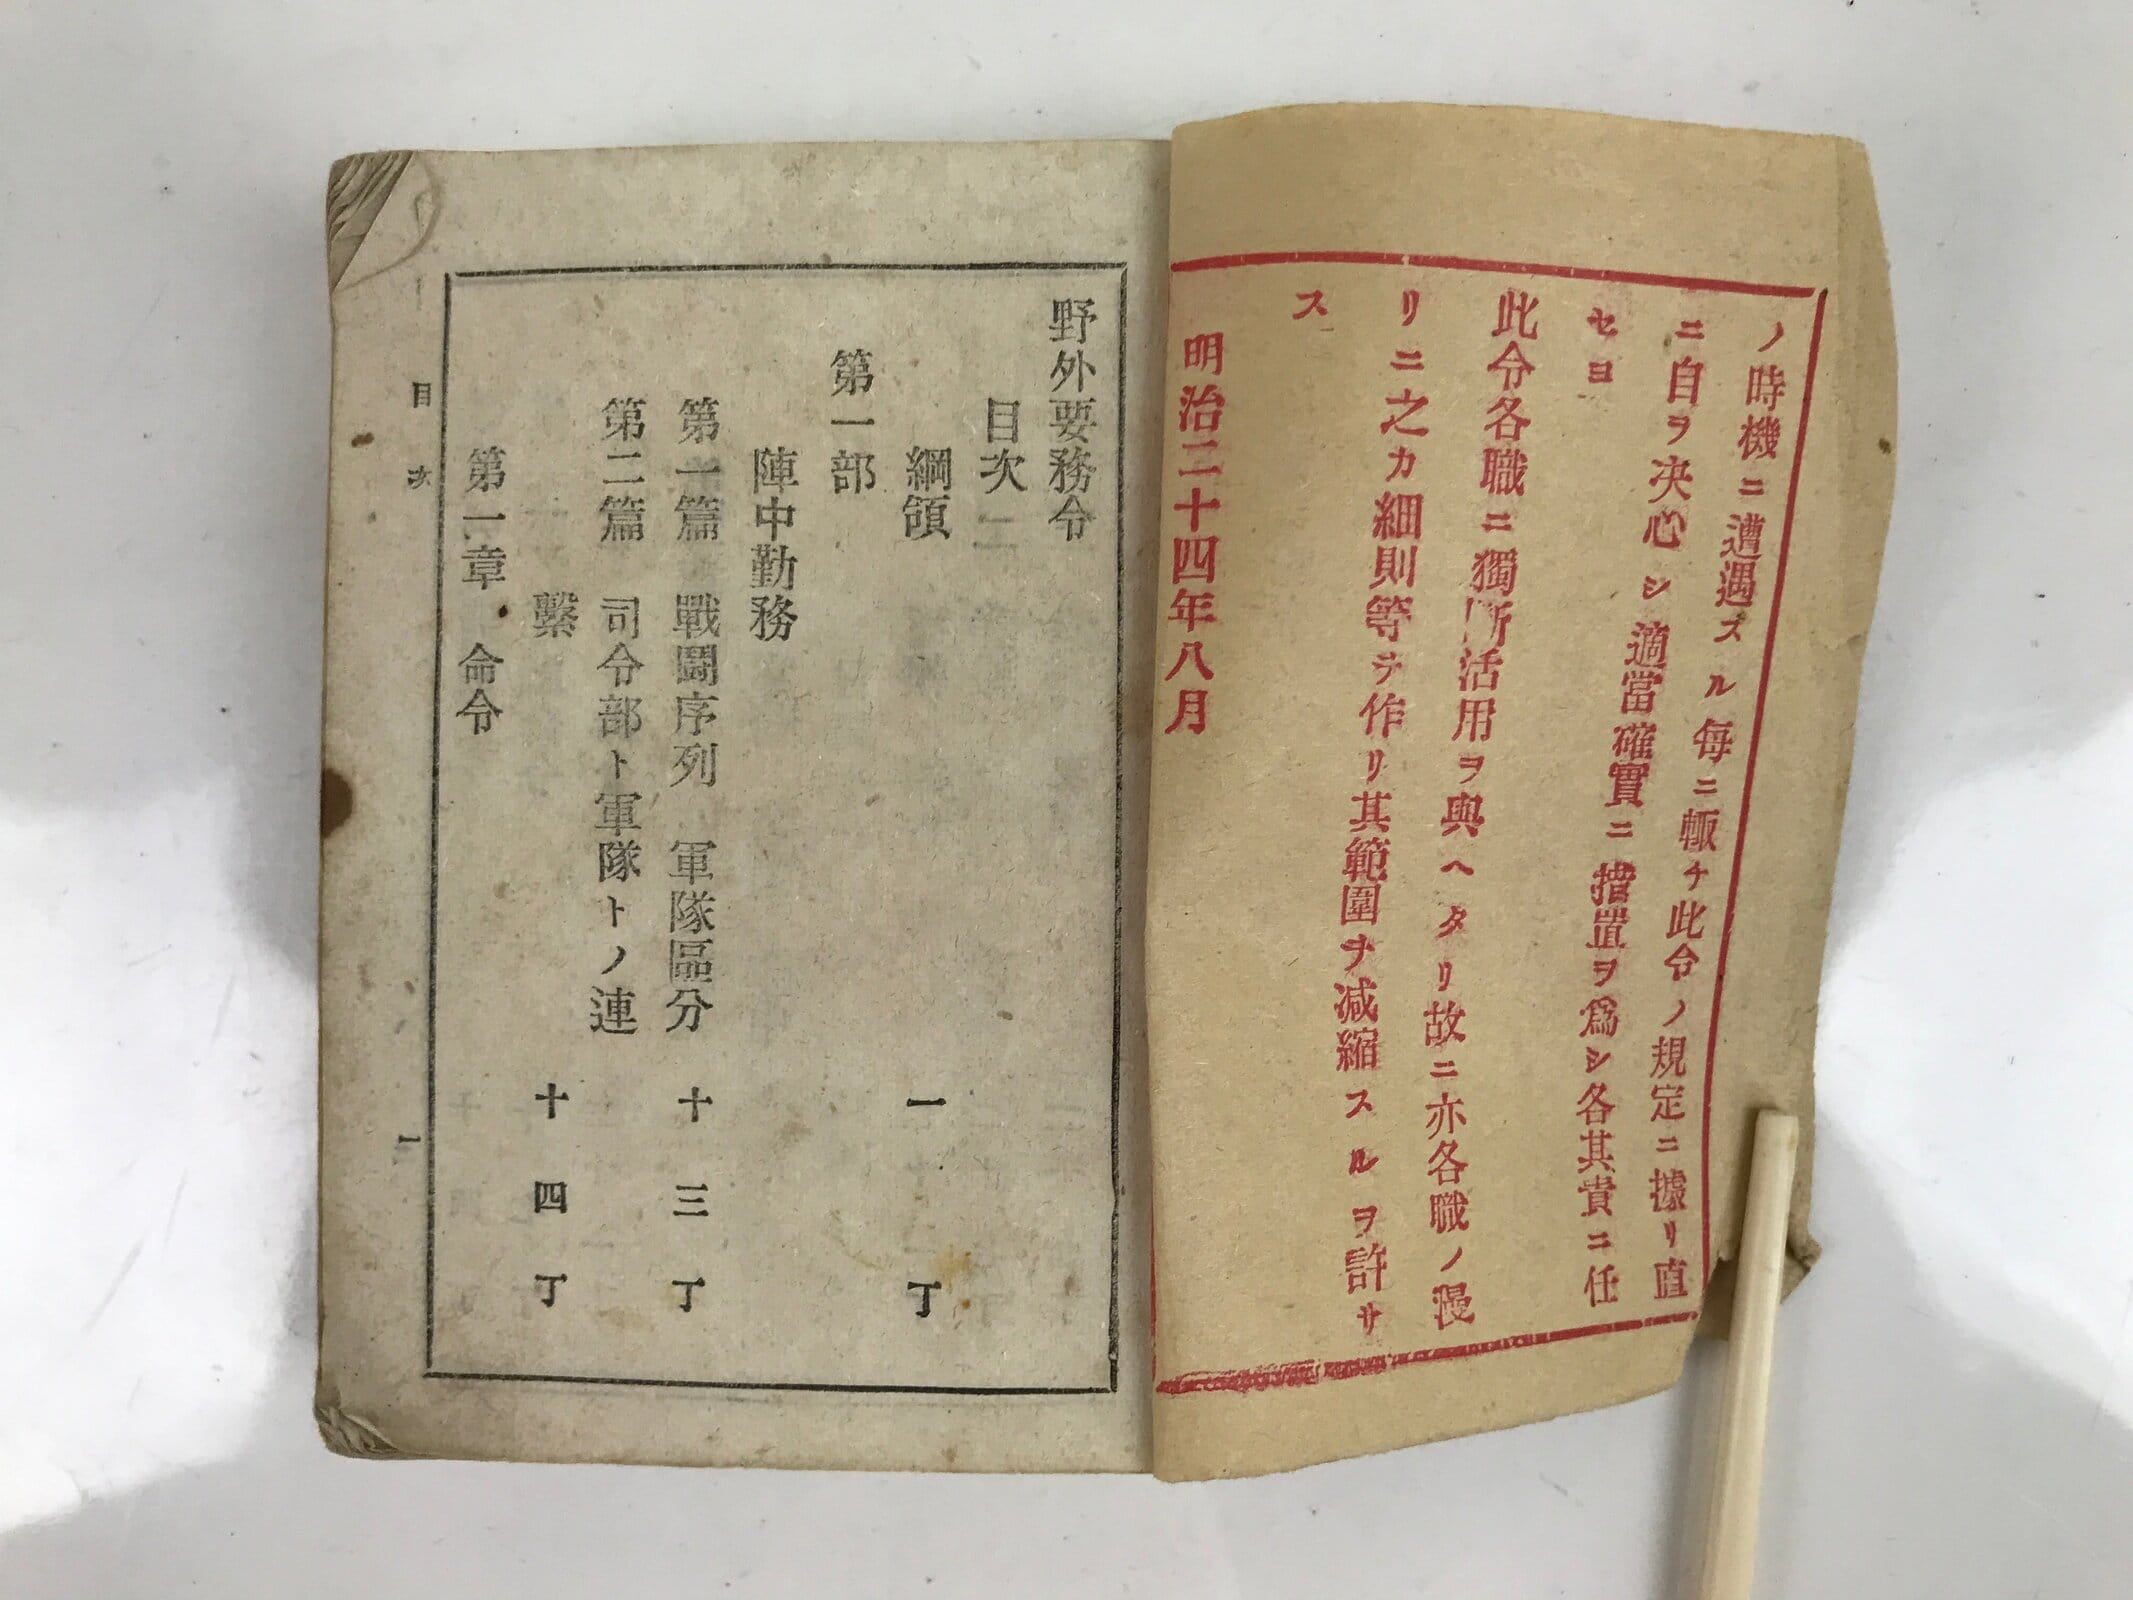 ノ時機ニ遭遇スル毎ニ輙チ此令ノ規定ニ據リ直
ニ自ヲ决心シ適當確實ニ措置ヲ爲シ各其責ニ任
セヨ
此令各職ニ獨斷活用ヲ與ヘタリ故ニ亦各職ノ漫
リニ之カ細則等ヲ作リ其範圍ヲ减縮スルヲ許サ
ス
明治二十四年八月
野外要務令
目次
綱領 一丁
第一部
陣中勤務
第一篇 戰鬪序列 軍隊區分 十三丁
第二篇 司令部ト軍隊トノ連
繫 十四丁
第一章 命令
目次 一